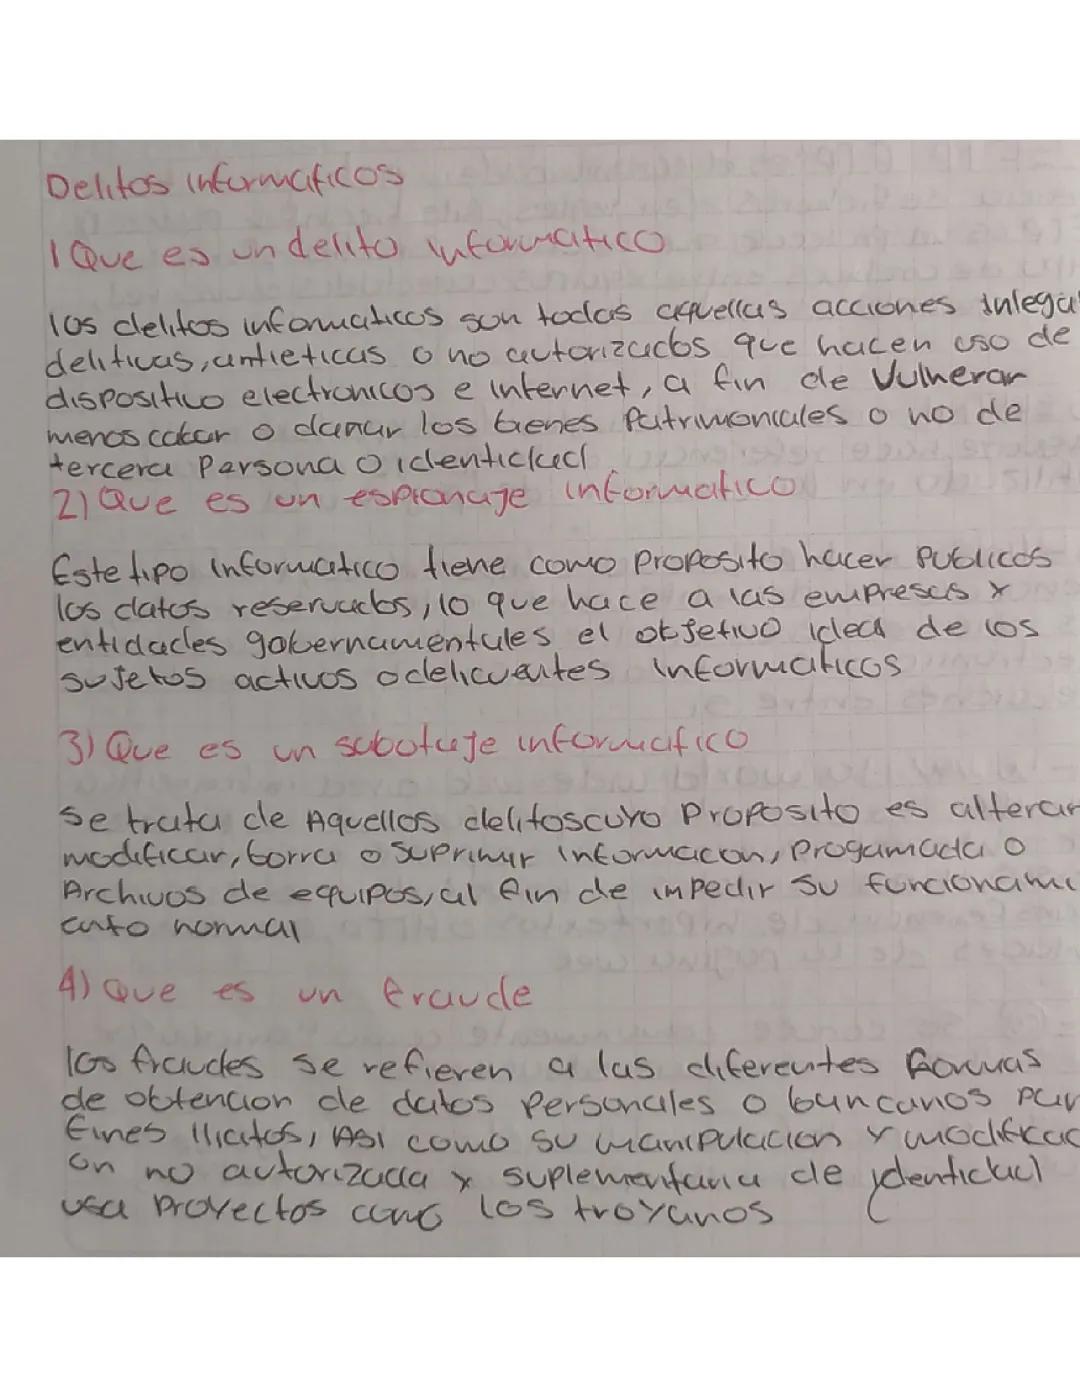 Delitos informaticos
1 Que es un delito informatico
los delitos informaticos son todas aquellas acciones inlegal
deliticuas, antieticas o no autorizados que hacen uso de
dispositivo electronicos e internet, a fin de Vulnerar
menos cabar o danar los bienes Patrimoniales o no de
tercera Persona o identidad
2) Que es un espionaje informatico
Este tipo informatico tiene como proposito hacer publicos
los datos reservados, lo que hace a las empresas y
entidades gobernamentales el objetivo idea de los
sujetos activos o delicuentes informaticos
3) Que es un sabotaje informatico
se trata de Aquellos delitoscuyo Proposito es alterar
modificar, borra o Suprimir informacon, Progamada o
Archivos de equipos, al fin de impedir su funcionami
ento normal
4) Que es un fraude
los fraudes se refieren a las diferentes formas
de obtencion de datos Personales o buncarios par
fines Ilicitos, Asi como su manipulacion y modificac
on no autorizada y suplementaria de identidad
usa Proyectos como los troyanos